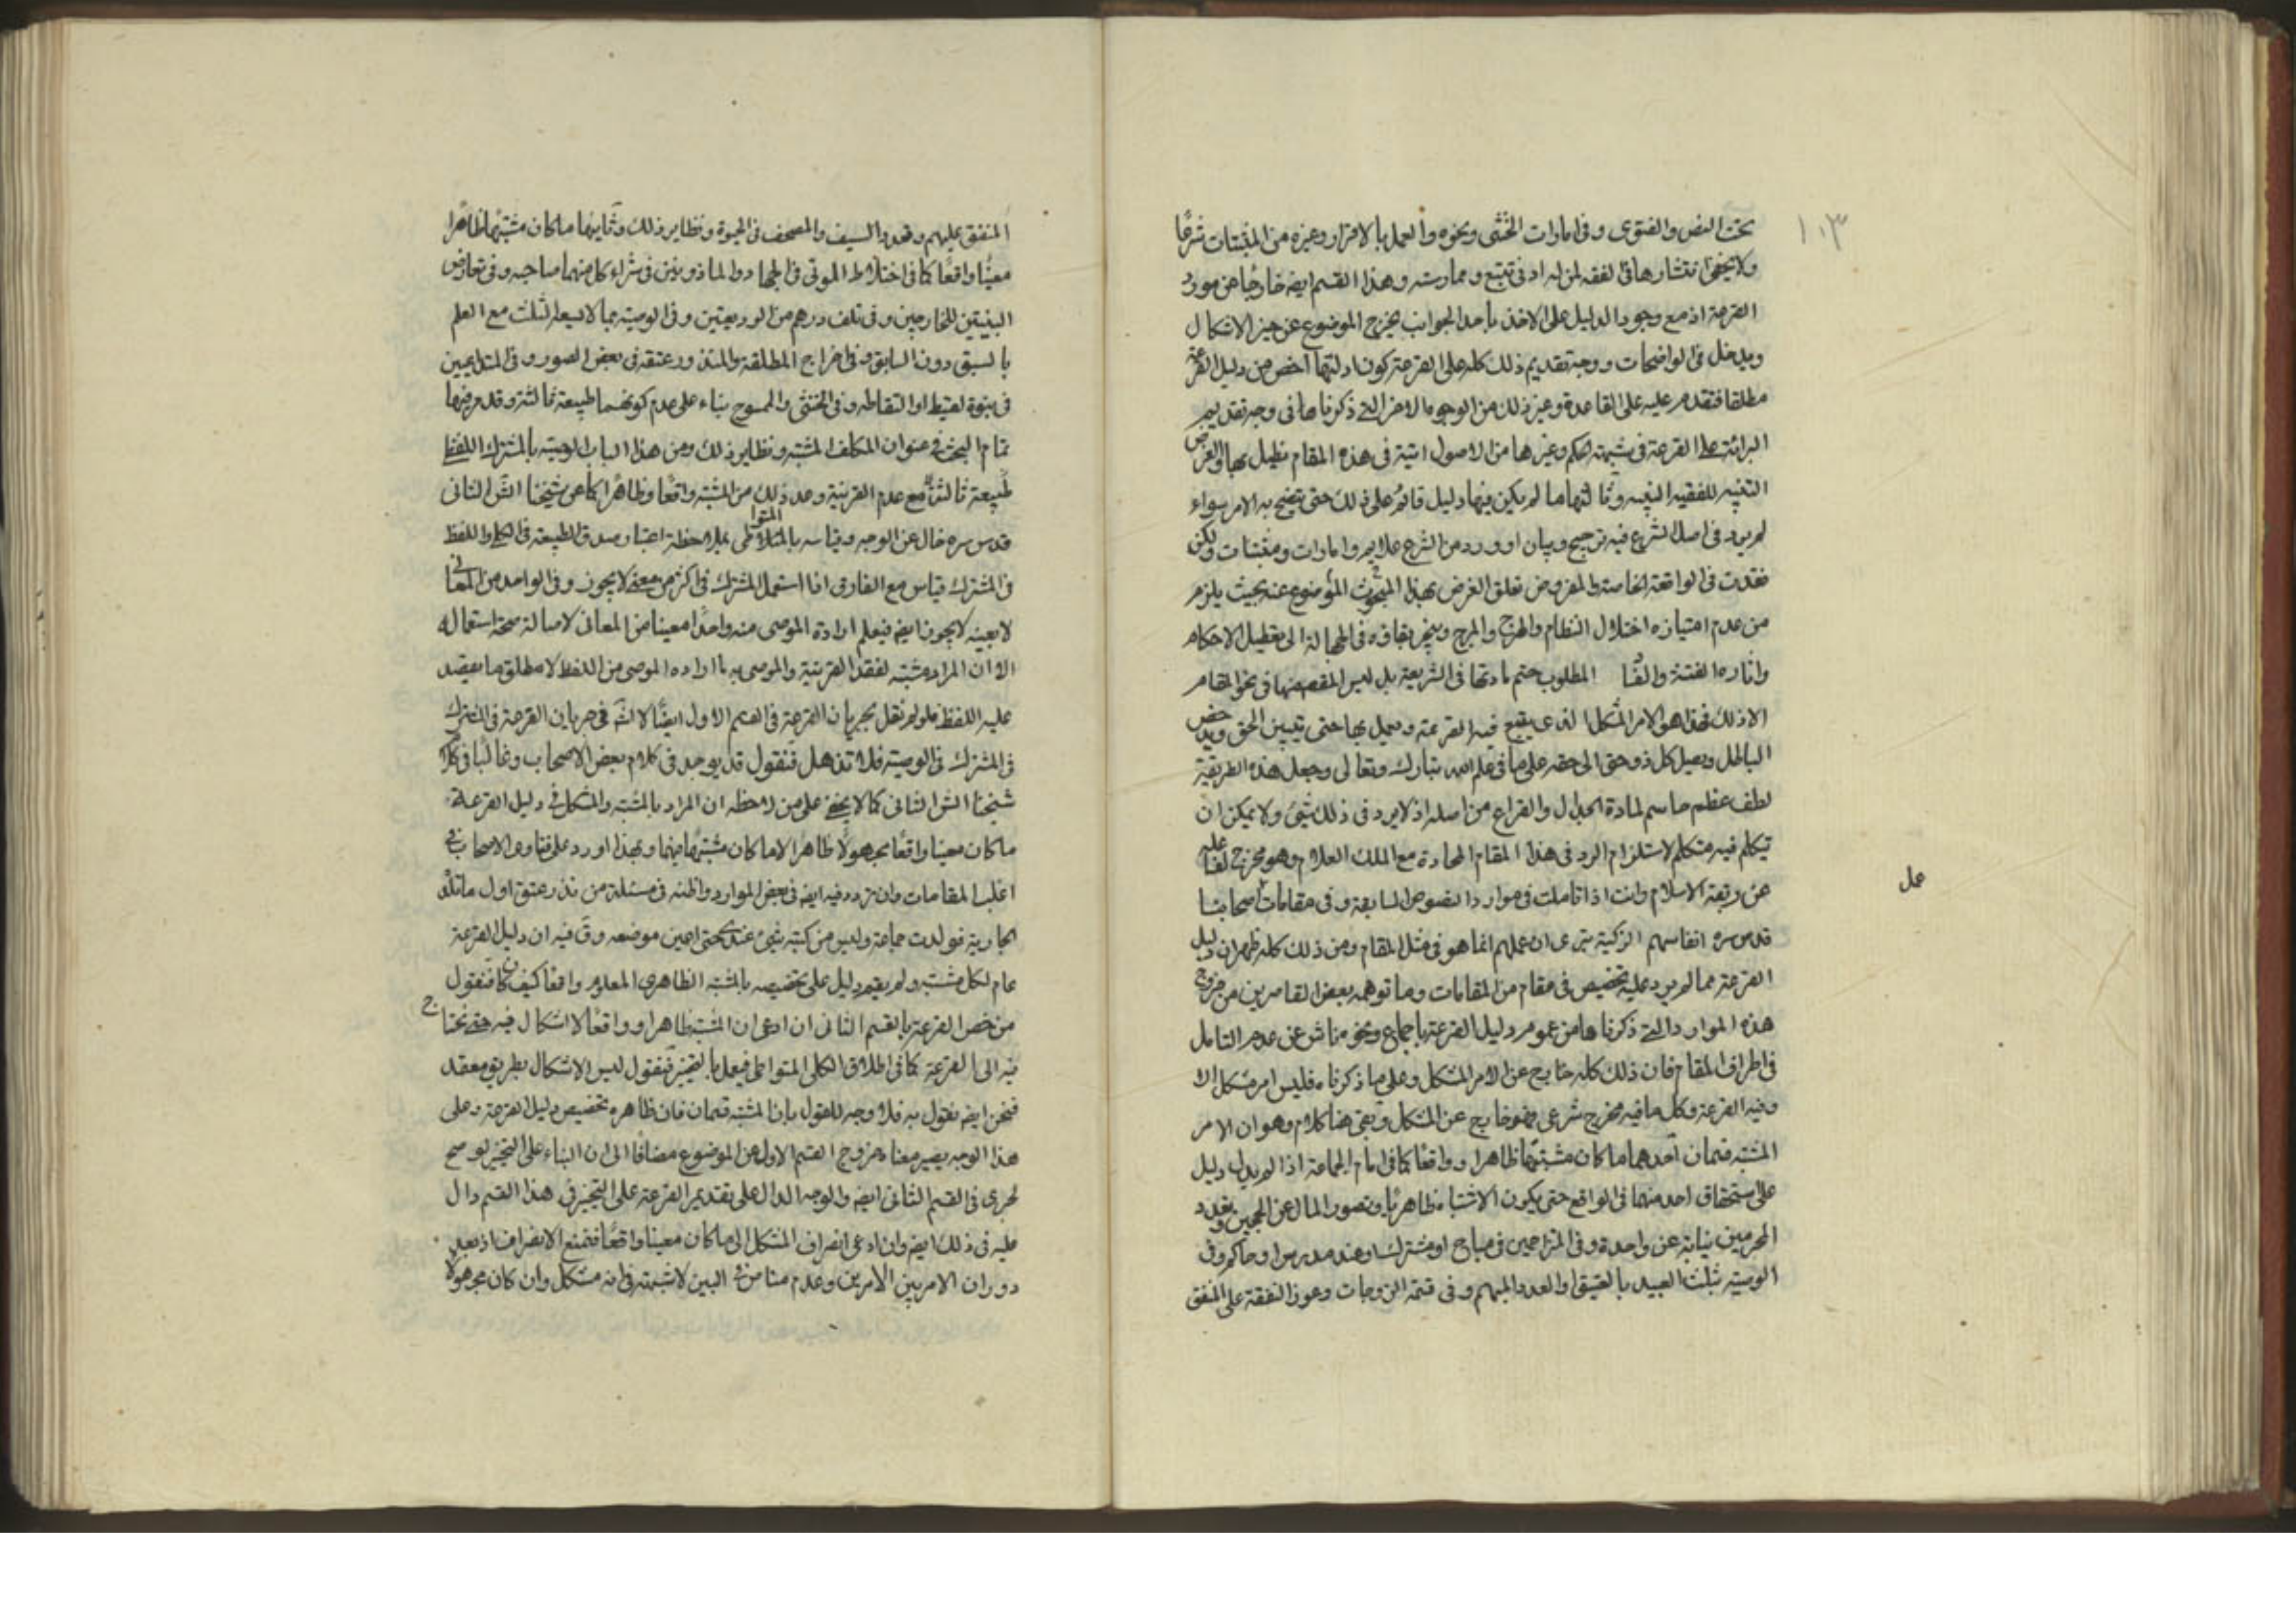 ١٠٣
تحت النص والفتوى وفى امارات الخنثى ونحوه والعمل بالاقرار وغيره من المثبتات شرعًا
ولا يخفى انتشارها فى الفقه لمن له ادنى تتبع وممارسته وهذا القسم ايضه خارجا عن مورد
القرعة اذ مع وجود الدليل على الاخذ باحد الجوانب يخرج الموضوع عن حيز الاشكال
ويدخل فى الواضحات ووجه تقديم ذلك كله على القرعة كون ادلتها اخص من دليل القرعة
مطلقا فتقدم عليه على القاعدة وغير ذلك من الوجوه الاخر التى ذكرناها فى وجه تقديم
البرائة على القرعة فى شبهة الحكم وغيرها من الاصول اتية فى هذه المقام نطيل بها والغرض
التنبيه للفقيه النبيه وثالثها ما لم يكن فيها دليل قائم على ذلك حتى يتضح به الامر سواء
لم يرد فى اصل الشرع فيه ترجيح وبيان او ورد من الشرع علايم وامارات ومثبتات ولكن
فقدت فى الواقعة الخاصة والمفروض تعلق الغرض بهذا المبحوث الموضوع عنه بحيث يلزم
من عدم امتيازه اختلال النظام والهرج والمرج وينجر بقاؤه فى الجهالة الى تعطيل الاحكام
واثارة الفتنة والفسا المطلوب حتم مادتها فى الشريعة بل ليس المقصد منها فى نحو المقام
الا ذلك فهذا هو الامر المشكل الذى يقع فيه القرعة ويعمل بها حتى يتبين الحق ويدحض
الباطل ويصل كل ذو حق الى حقه على ما فى علم الله تبارك وتعالى وجعل هذه الطريقة
لطف عظم حاسم لمادة الجدال والنزاع من اصله اذ لا يرد فى ذلك شئ ولا يمكن ان
يتكلم فيه متكلم لاستلزام الرد فى هذا المقام المحادة مع الملك العلام وهو مخرج لفاعله
عمل
عن ربقة الاسلام وانت اذا تاملت فى موارد النصوص السابقة وفى مقامات اصحابنا
قدس سره انفاسهم الزكية ترى ان عملهم انما هو فى مثل المقام ومن ذلك كله ظهر ان دليل
القرعة مما لم يرد عليه تخصيص فى مقام من المقامات وما توهمه بعض القاصرين من خروج
هذه الموارد التى ذكرناها من عموم دليل القرعة باجماع ونحوه ناش عن عدم التامل
فى اطراف المقام فان ذلك كله خارج عن الامر المشكل وعلى ما ذكرناه فليس امر مشكل الا
وفيه القرعة وكل ما فيه مخرج شرعى فهو خارج عن المشكل وبقى هنا كلام وهو ان الامر
المشتبه قسمان احدهما ما كان مشتبها ظاهرا وواقعا كما فى امام الجماعة اذا لم يدل دليل
على استحقاق احد منهما فى الواقع حتى يكون الاشتباه ظاهريا وقصور المال عن الحجين وتعدد
المحرمين نيابة عن واحدة وفى المتزاحمين فى مباح او مشترك او عند مدرس او حاكم وفى
الوصية بثلث العبيد بالعتيق او العدد المبهم وفى قسمة الزوجات وعوز النفقة على المنفق
المنفق عليهم وتعدد السيف والمصحف فى الحبوة ونظاير ذلك وثانيهما ما كان مشتبها ظاهرا
معينا واقعا كما فى اختلاط الموتى فى الجهاد والماذونين فى شراء كل منهما صاحبه وفى تعارض
البينتين للخارجين وفى تلف درهم من الوديعتين وفى الوصية بما لا يسعه الثلث مع العلم
بالسبق دون السابق وفى اخراج المطلقة والمنذور عتقه فى بعض الصور وفى المتداعيين
فى بنوة لقيط او التقاطه وفى الخنثى والممسوح بناء على عدم كونهما طبيعة ثالثة وقد مر فيهما
تمام البحث فى عنوان المكلف المشتبه ونظاير ذلك ومن هذا الباب الوصية بالمشترك اللفظى
طبيعة ثالثة مع عدم القرينة وعد ذلك من المشتبه واقعا وظاهرا كما عن شيخنا الش الثانى
قدس سره خال عن الوجه وقياسه بالمتواطى بملاحظة اعتبار صدق الطبيعة فى الكلى واللفظ
فى المشترك قياس مع الفارق اذا استعمل المشترك فى اكثر من معنى لا يجوز وفى الواحد من المعانى
لا بعينه لا يجوز ايضه فيعلم ارادة الموصى منه واحدا معينا من المعانى لاصالة صحة استعماله
الا ان المراد مشتبه لفقد القرينة والموصى به ما اراده الموصى من اللفظ لا مطلق ما يصد
عليه اللفظ فلو لم نقل بجريان القرعة فى القسم الاول ايضا لا اشكال فى جريان القرعة فى المشترك
فى المشترك فى الوصية فلا تذهل فنقول قد يوجد فى كلام بعض الاصحاب وغالبا فى كلام
شيخنا الش الثانى كما لا يخفى على من لاحظه ان المراد بالمشتبه والمشكل فى دليل القرعة
ما كان معينا واقعا مجهولا ظاهرا لا ما كان مشتبها فيهما وبهذا اورد على فتاوى الاصحاب فى
اغلب المقامات وان تردد فيه ايضه فى بعض الموارد واظنه فى مسئلة من نذر عتق اول ما تلده
الجارية فولدت جماعة وليس من كتبه شئ عندى حتى اعين موضعه وق فيه ان دليل القرعة
عام لكل مشتبه ولم يقم دليل على تخصيصه بالمشتبه الظاهرى المعلوم واقعا كيف كان فنقول
من خص القرعة بالقسم الثانى ان ادعى ان المشتبه ظاهرا وواقعا لا اشكال فيه حتى نحتاج
فيه الى القرعة كما فى اطلاق الكلى المتواطى فيعمل بالتخيير فنقول ليس الاشكال بطريق معقد
فنحن ايضه نقول به فلا وجه للقول بان المشتبه قسمان فان ظاهره تخصيص دليل القرعة وعلى
هذا الوجه يصير معناه خروج القسم الاول عن الموضوع مضافا الى ان البناء على التخيير لو صح
لجرى فى القسم الثانى ايضه والوجه الدال على تقديم القرعة على التخيير فى هذا القسم دال
عليه فى ذلك ايضه وان ادعى انصراف المشكل الى ما كان معينا واقعا فنمنع الانصراف اذ بعد
دوران الامر بين الامرين وعدم مناص فى البين لا شبهة فى انه مشكل وان كان مجهولا